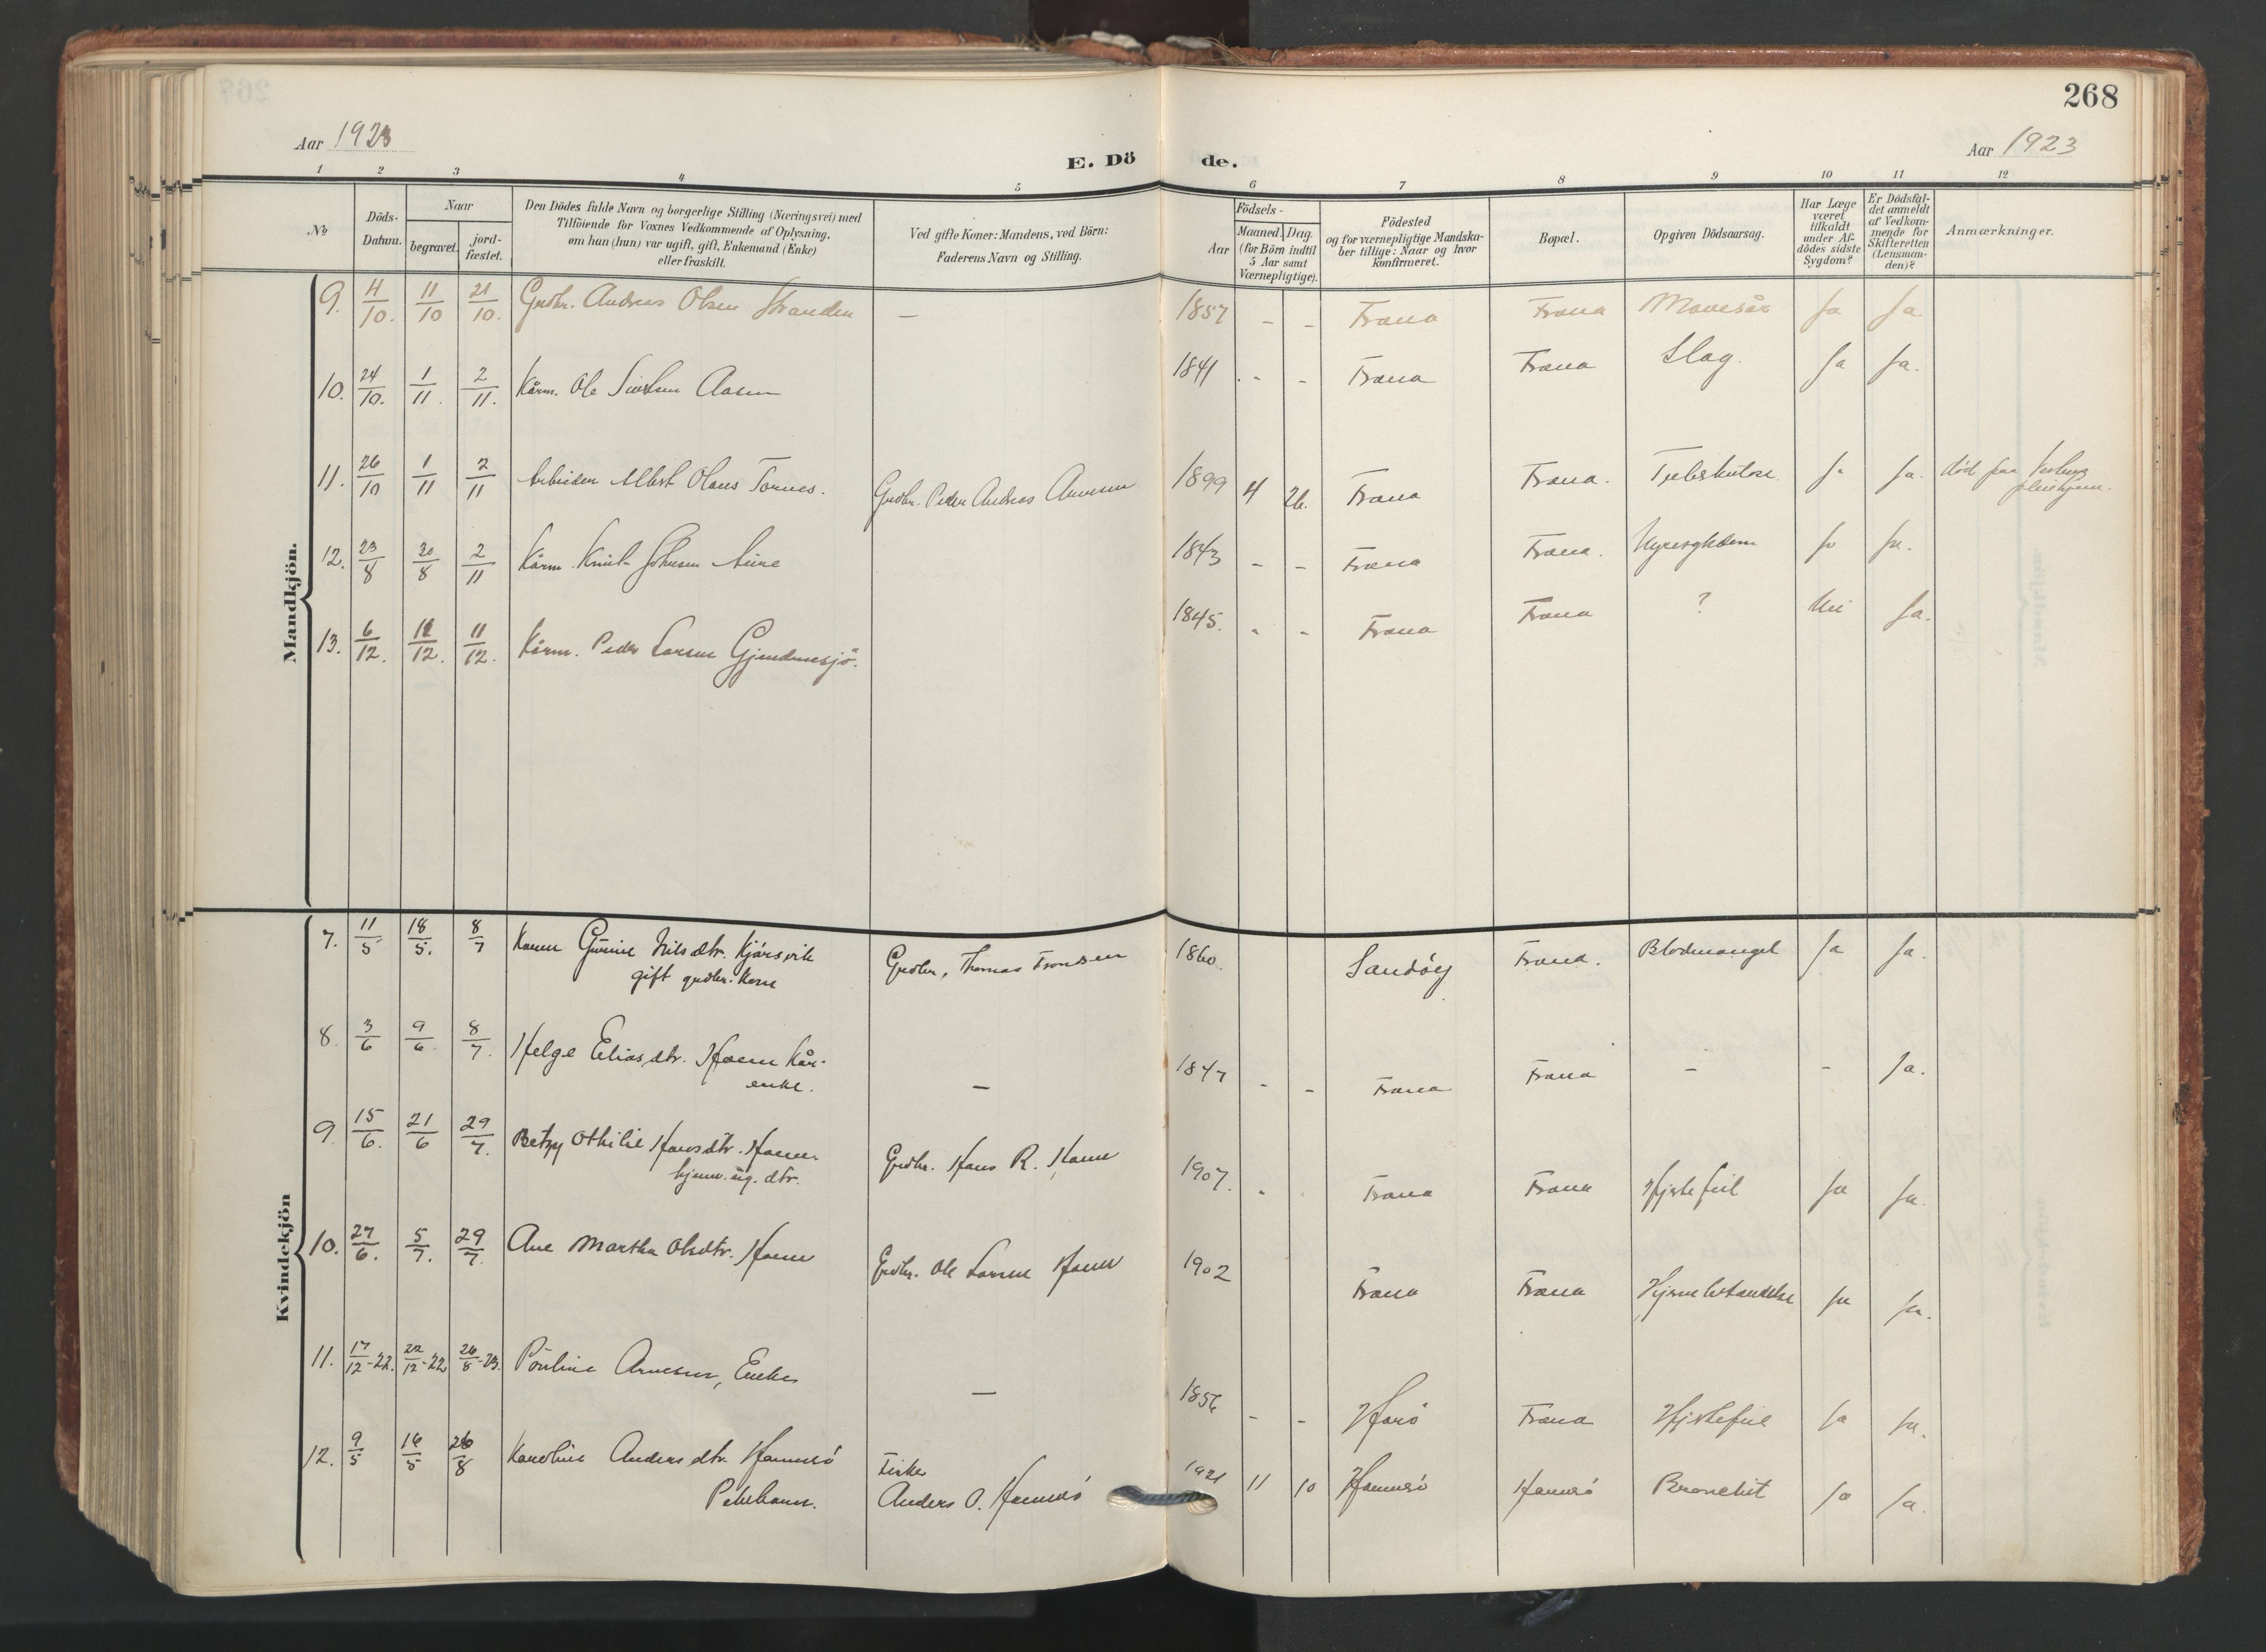 268
Aar 1923
Aar 1923
E. Dö de.
1 2 3 4 5 6 7 8 9 10 11 12
No
Döds-Datum.
Naar
begravet.
jord-fæstet.
Den Dödes fulde Navn og borgerlige Stilling (Næringsvei) med
Tilföiende for Voxnes Vedkommende af Oplysning,
om han (hun) var ugift, gift, Enkemand (Enke)
eller fraskilt.
Ved gifte Koner: Mandens, ved Börn:
Faderens Navn og Stilling.
Födsels-
Aar
Maaned. Dag.
(for Börn indtil
5 Aar samt
Værnepligtige).
Födested
og for værnepligtige Mandska-
ber tillige: Naar og hvor
konfirmeret.
Bopæl.
Opgiven Dödsaarsag.
Har Læge
været
tilkaldt
under Af-
dödes sidste
Sygdom?
Er Dödsfal-
det anmeldt
af Vedkom-
mende for
Skifteretten
(Lensman-
den)?
Anmærkninger.
Mandkjön.
9. 4/10. 11/10 21/10. Grdbr. Andreas Olsen Stranden — 1857 - - Fræna Fræna Mavesår Ja Ja
10. 24/10. 1/11. 2/11. Kårm. Ole Sivertsen Aasen 1841 - - Fræna Fræna Slag. Ja Ja.
11. 26/10 1/11 2/11 Arbeider Albert Olaus Tornes. Grdbr. Peder Andreas Arnesen 1899 4 26. Fræna Fræna. Tuberkulose Ja Ja. död paa
12. 23/8 30/8 2/11 Kårm. Knut Johnsen Aure 1843 - - Fræna Fræna. Nyresygdom Ja Ja.
13. 6/12. 12/12. 11/12. Kårm. Peder Larsen Gjendemsjö. 1845. - - Fræna Fræna ? Nei Ja.
Kvindekjön
7. 11/5 18/5. 8/7 Karen Gurine Nilsdtr. Kjörsvik Grdbr. Thomas Tronsen 1860. Sandöy Fræna. Blodmangel Ja Ja.
gift grdbr. Kone
8. 3/6 9/6 8/7. Helge Eliasdtr. Haem Kår- — 1847 - - Fræna Fræna - - Ja.
enke.
9. 15/6. 21/6 29/7. Betzy Othilie Hansdtr. Haem. Grdbr. Hans R. Haem 1907. - Fræna Fræna Hjertefeil Ja Ja.
hjemv. ug. dtr.
10. 27/6. 5/7. 29/7. Ane Martha Olsdtr. Haem Grdbr. Ole Larsen Haem 1902 Fræna Fræna Hjernebetændelse Ja Ja.
11. 17/12-22. 22/12-22 26/8-23. Pauline Arnesen, Enke — 1856 - - Harö Fræna Hjertefeil Ja Ja.
12. 9/5 16/5 26/8 Karoline Andersdtr. Hammersö Fisker 1921 11 10 Hammersö Hammersö Bronchit Ja Ja.
Pikebarn. Anders O. Hammersö